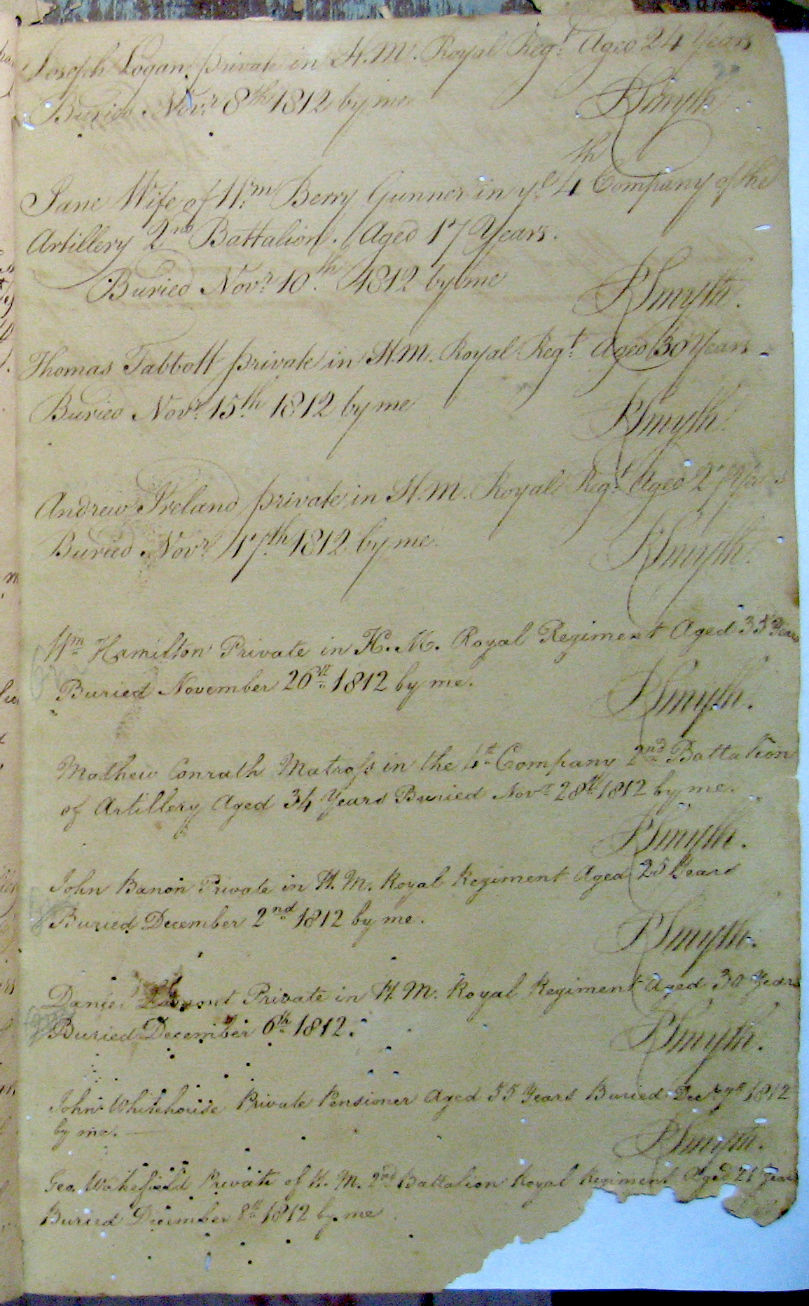 Joseph Logan private in H.M. Royal Regt. Aged 24 Years
Buried Novr. 8th 1812 by me
RSmyth
Jane Wife of Wm. Berry Gunner in ye. 4th Company of the
Artillery 2nd Battalion. Aged 17 Years.
Buried Novr. 10th 1812 by me
RSmyth.
Thomas Tabbott private in H.M. Royal Regt. Aged 30 Years
Buried Novr. 15th 1812 by me
RSmyth
Andrew Ireland private in H.M. Royal Regt. Aged 27 Years
Buried Novr. 17th 1812 by me.
RSmyth.
Wm. Hamilton Private in H.M. Royal Regiment Aged 35 Years
Buried November 26th. 1812 by me.
RSmyth.
Mathew Conrath Matross in the 4th Company 2nd Battalion
of Artillery Aged 34 Years Buried Novr. 28th 1812 by me.
RSmyth.
John Banon Private in H.M. Royal Regiment Aged 25 Years
Buried December 2nd 1812 by me.
RSmyth.
Daniel Private in H.M. Royal Regiment Aged 30 Years
Buried December 6th. 1812.
RSmyth.
John Whitehouse Private Pensioner Aged 55 Years Buried Decr. 7th 1812
by me.
RSmyth.
Geo. Wakefield Private of H.M. 2nd Battalion Royal Regiment Aged 21 Years
Buried December 8th 1812 by me